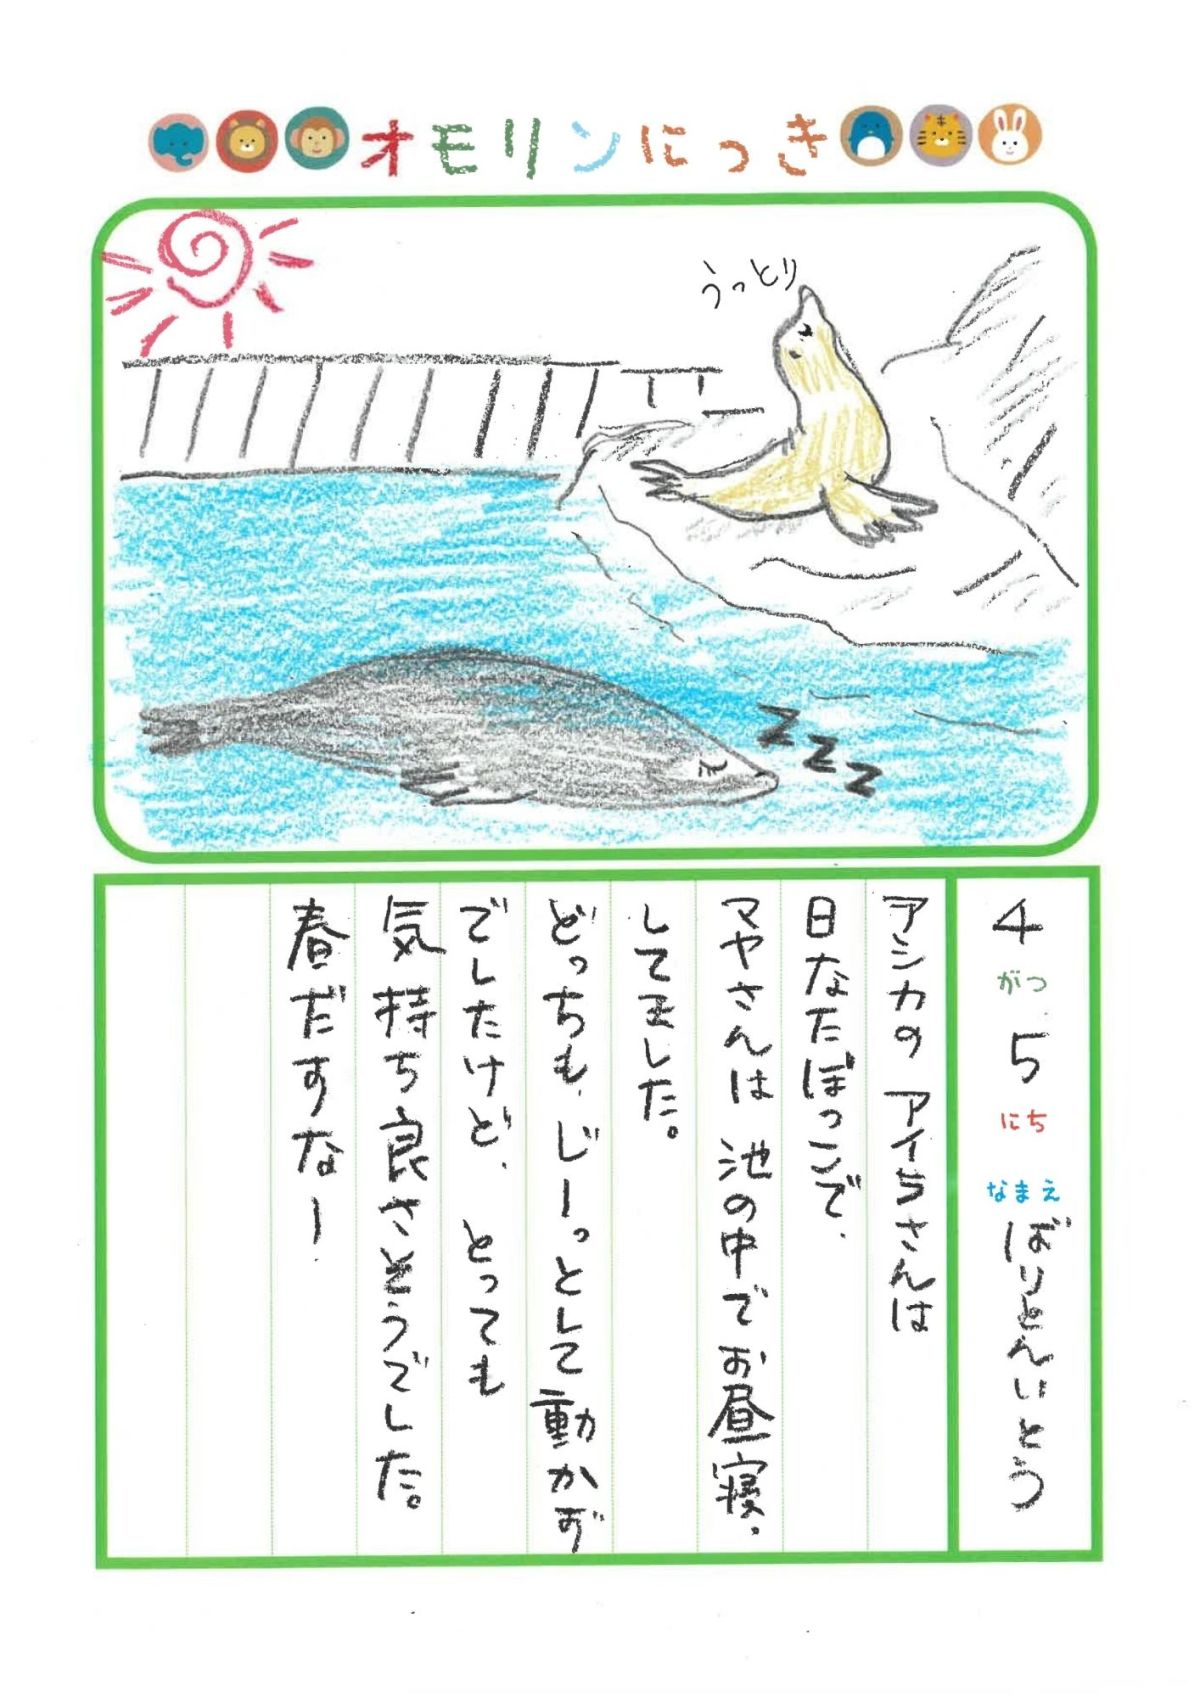 オモリンにっき
うっとり
zzz
4がつ5にち なまえ ばりとんいとう
アシカの アイらさんは
日なたぼっこで、
マヤさんは 池の中でお昼寝。
してました。
どっちも、じーっとして動かず
でしたけど、 とっても
気持ち良さそうでした。
春だすなー